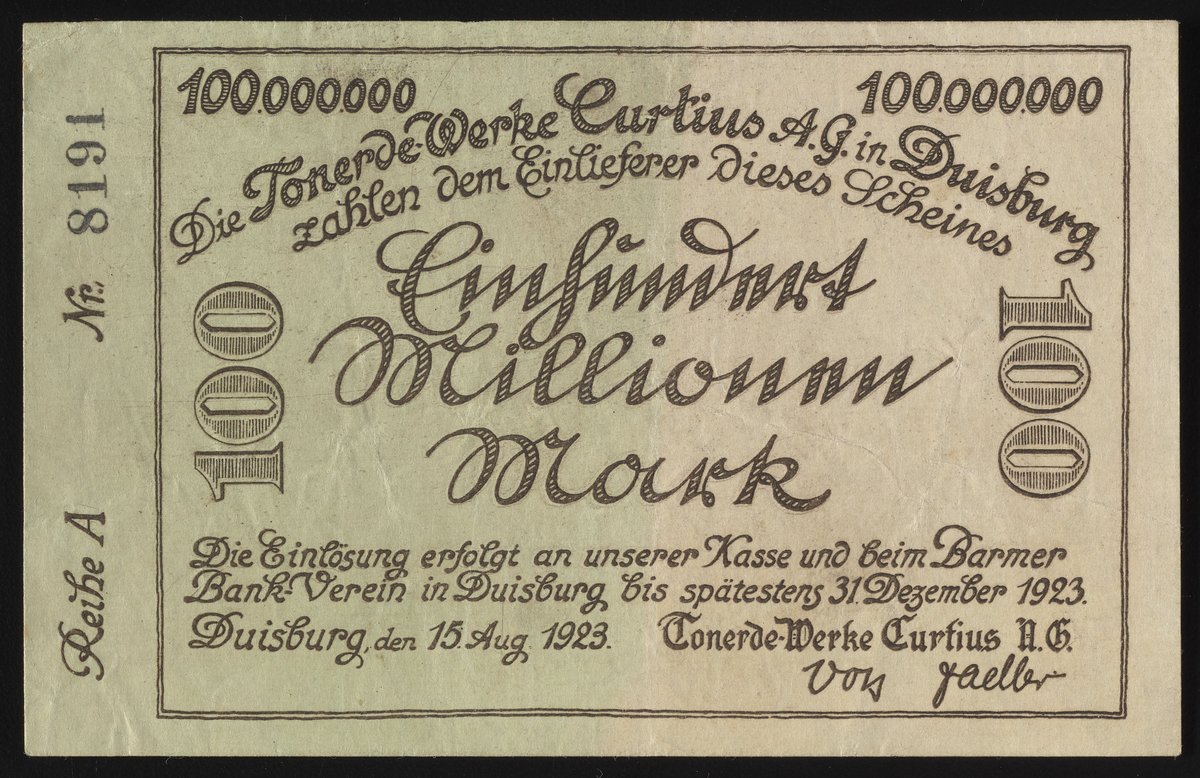 100.000.000
100.000.000
Die Tonerde-Werke Curtius A.G. in Duisburg
zahlen dem Einlieferer dieses Scheines
Einhundert
Millionen
Mark
100
100
Die Einlösung erfolgt an unserer Kasse und beim Barmer
Bank-Verein in Duisburg bis spätestens 31. Dezember 1923.
Duisburg, den 15. Aug. 1923.
Tonerde-Werke Curtius A.G.
Reihe A
Nr. 8191